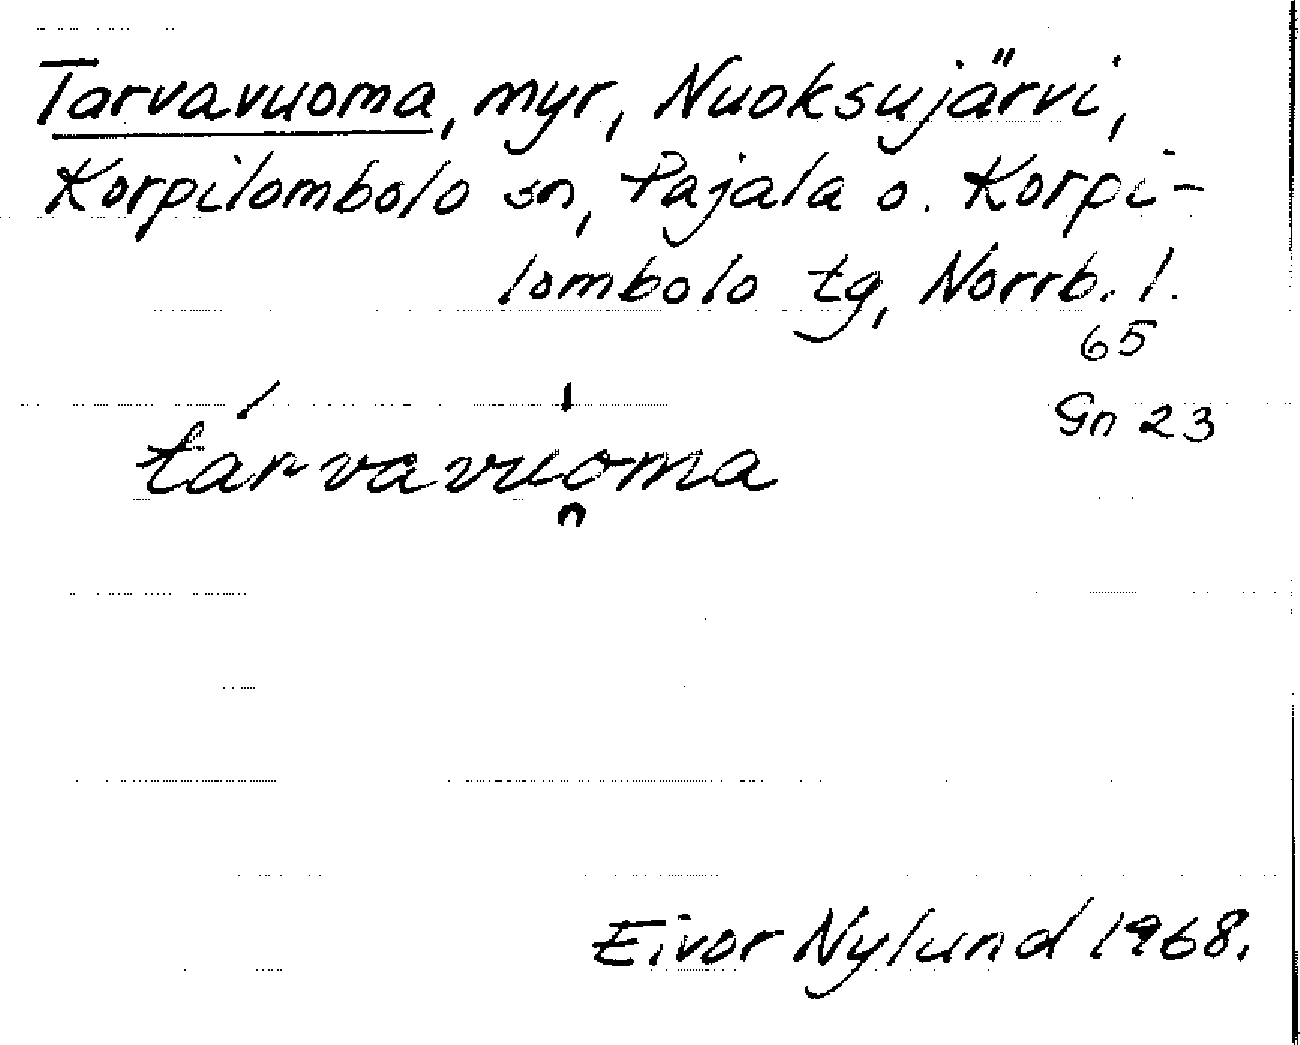 Tarvavuoma, myr, Nuoksujärvi,
Korpilombolo sn, Pajala o. Korpi-
lombolo tg, Norrb. l.
65
Gn 23
tárvavuo̯ma
Eivor Nylund 1968.